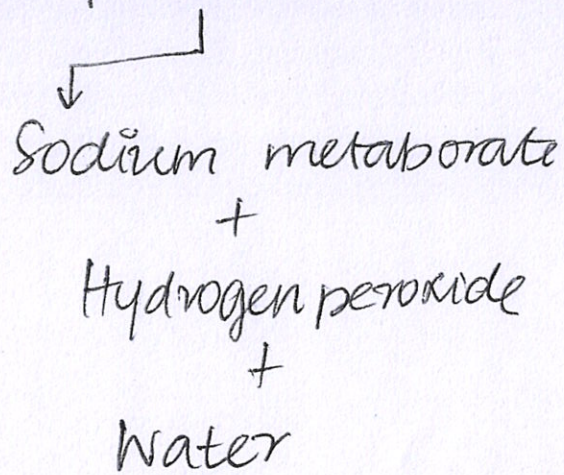 Sodium metaborate
+
Hydrogen peroxide
+
Water